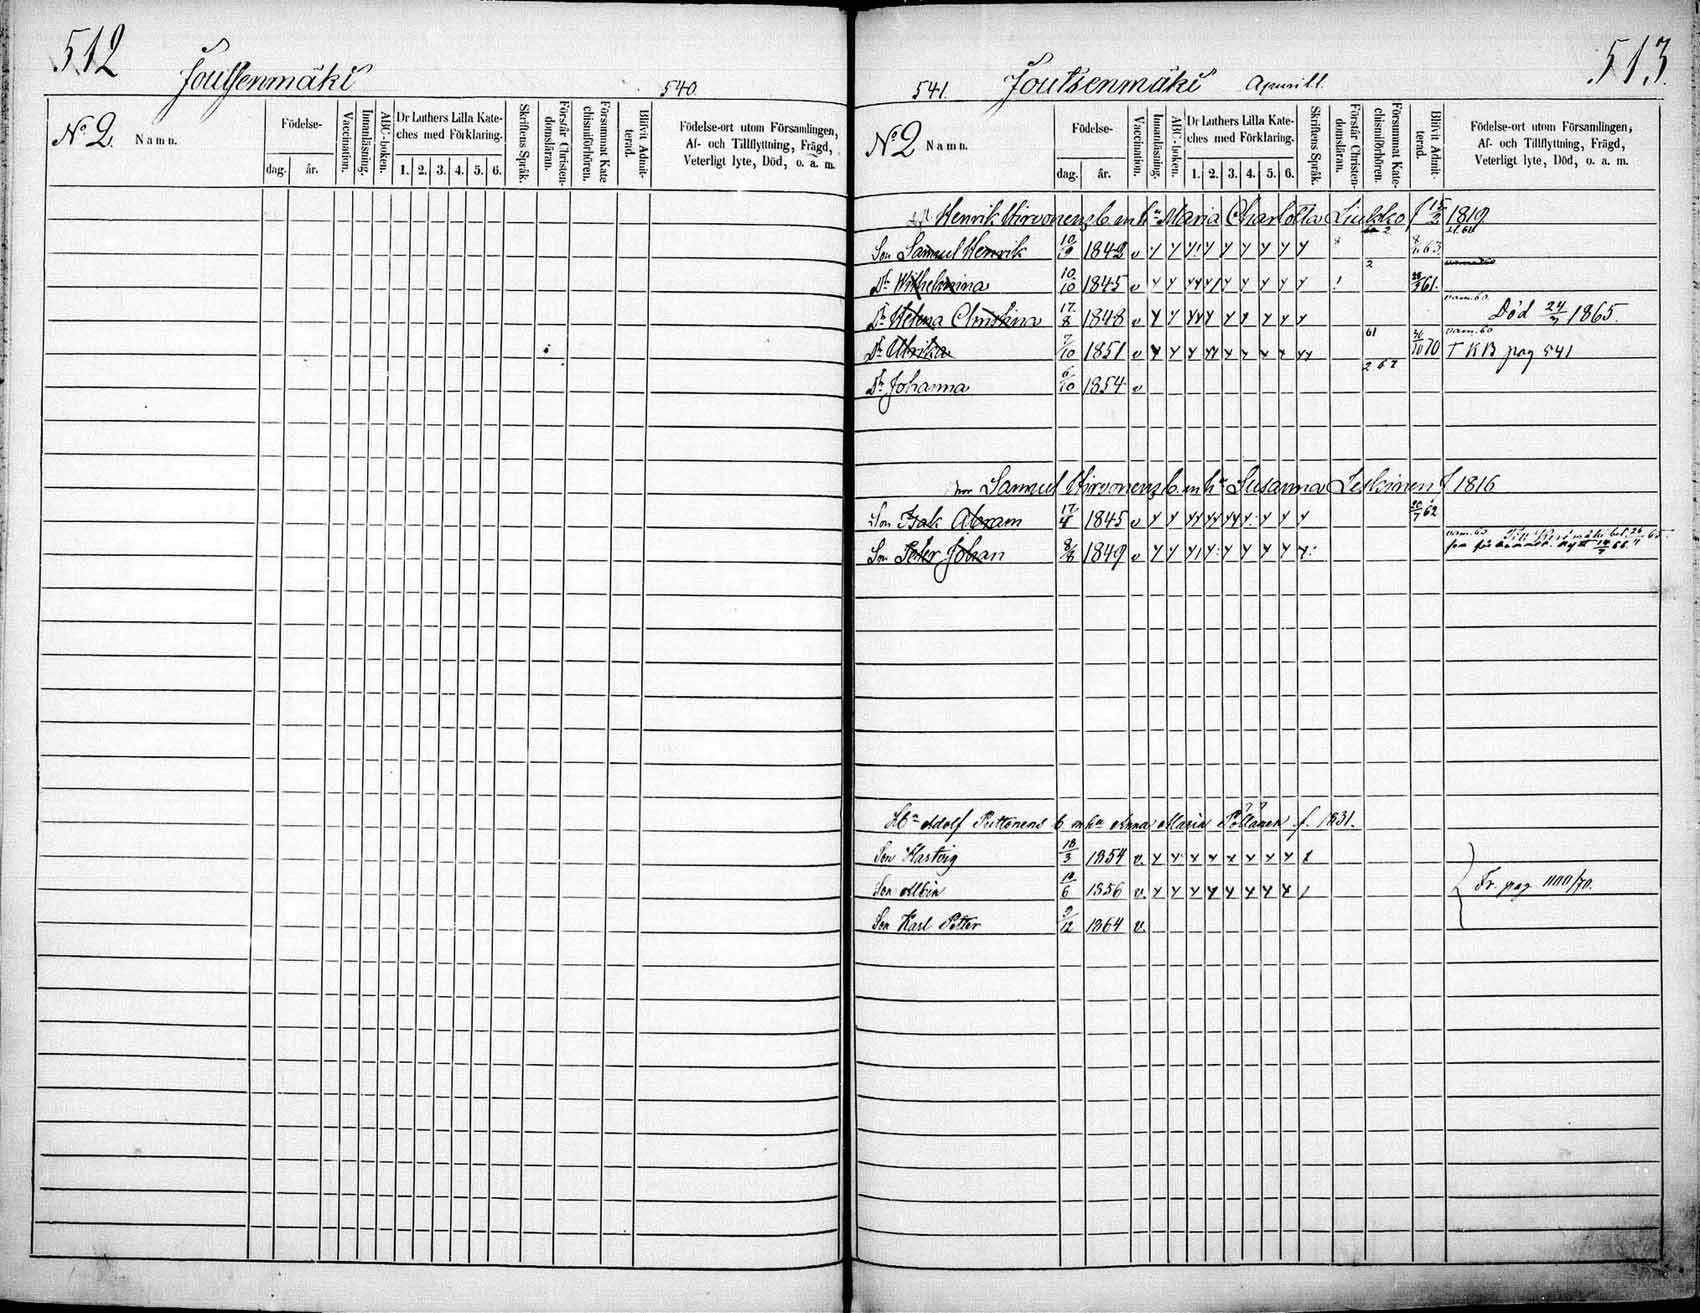 512
Joutsenmäki
540
No 2.
Namn.
Födelse-
dag. år.
Vaccination.
Innanläsning.
ABC-boken.
Dr Luthers Lilla Kate-
ches med Förklaring.
1. 2. 3. 4. 5. 6.
Skriftens Språk.
Förstår Christen-
domsläran.
Försummat Kate
chismiförhören.
Blifvit Admit-
terad.
Födelse-ort utom Församlingen,
Af- och Tillflyttning, Frägd,
Veterligt lyte, Död, o. a. m.
513.
541. Joutsenmäki
No 2
Namn.
Födelse-
dag. år.
Vaccination.
Innanläsning.
ABC-boken.
Dr Luthers Lilla Kate-
ches med Förklaring.
1. 2. 3. 4. 5. 6.
Skriftens Språk.
Förstår Christen-
domsläran.
Försummat Kate-
chismiförhören.
Blifvit Admit-
terad.
Födelse-ort utom Församlingen,
Af- och Tillflyttning, Frägd,
Veterligt lyte, Död, o. a. m.
Henrik Hirvonens b. m. hu Maria Charlotta f 15/2 1819
Son Samuel Henrik 10/9 1842 v
Dr Wilhelmina 10/10 1845 v 61.
Dr Helena Christina 17/8 1848 v Död 24/3 1865.
Dr Ulrika 7/10 1851 v 61 70 T K B pag 541
Dr Johanna 6/10 1854 v
Samuel Hirvonens b. m. hu Susanna Leskinen f 1816
Son Isak Abram 17/4 1845 v 62
Son Peter Johan 8/8 1849 v
Adolf Puttonens b m hu Anna Maria Pöllänen f. 1831.
Son Hartvig 18/3 1854 v.
Son Albin 19/6 1856 v. Fr. pag 1100/70.
Son Karl Petter 9/12 1864 v.